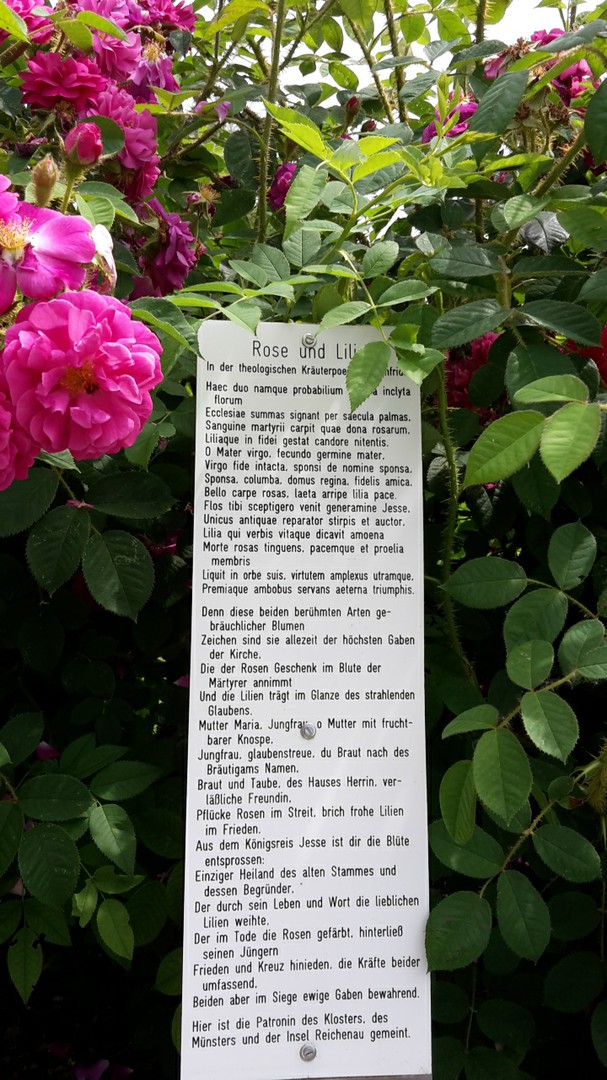 Rose und Lili
In der theologischen Kräuterpoe
Haec duo namque probabilium inclyta
florum
Ecclesiae summas signant per saecula palmas.
Sanguine martyrii carpit quae dona rosarum.
Liliaque in fidei gestat candore nitentis.
O Mater virgo, fecundo germine mater.
Virgo fide intacta, sponsi de nomine sponsa.
Sponsa, columba, domus regina, fidelis amica.
Bello carpe rosas, laeta arripe lilia pace.
Flos tibi sceptigero venit generamine Jesse.
Unicus antiquae reparator stirpis et auctor.
Lilia qui verbis vitaque dicavit amoena
Morte rosas tinguens, pacemque et proelia
membris
Liquit in orbe suis, virtutem amplexus utramque.
Premiaque ambobus servans aeterna triumphis.
Denn diese beiden berühmten Arten ge-
bräuchlicher Blumen
Zeichen sind sie allezeit der höchsten Gaben
der Kirche.
Die der Rosen Geschenk im Blute der
Märtyrer annimmt
Und die Lilien trägt im Glanze des strahlenden
Glaubens.
Mutter Maria, Jungfrau, o Mutter mit frucht-
barer Knospe.
Jungfrau, glaubenstreue, du Braut nach des
Bräutigams Namen,
Braut und Taube, des Hauses Herrin, ver-
läßliche Freundin.
Pflücke Rosen im Streit, brich frohe Lilien
im Frieden.
Aus dem Königsreis Jesse ist dir die Blüte
entsprossen:
Einziger Heiland des alten Stammes und
dessen Begründer.
Der durch sein Leben und Wort die lieblichen
Lilien weihte.
Der im Tode die Rosen gefärbt, hinterließ
seinen Jüngern
Frieden und Kreuz hinieden, die Kräfte beider
umfassend.
Beiden aber im Siege ewige Gaben bewahrend.
Hier ist die Patronin des Klosters, des
Münsters und der Insel Reichenau gemeint.